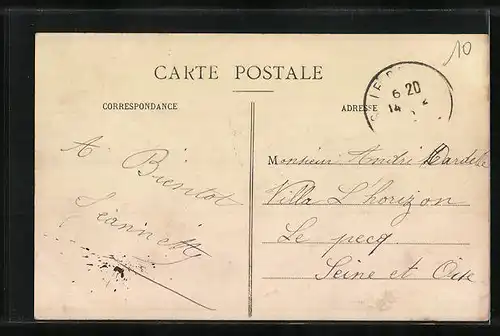 10
CARTE POSTALE
CORRESPONDANCE
ADRESSE
6 20
14
A Bientot
Jeannette
Monsieur André
Villa L'horizon
Le pecq.
Seine et Oise